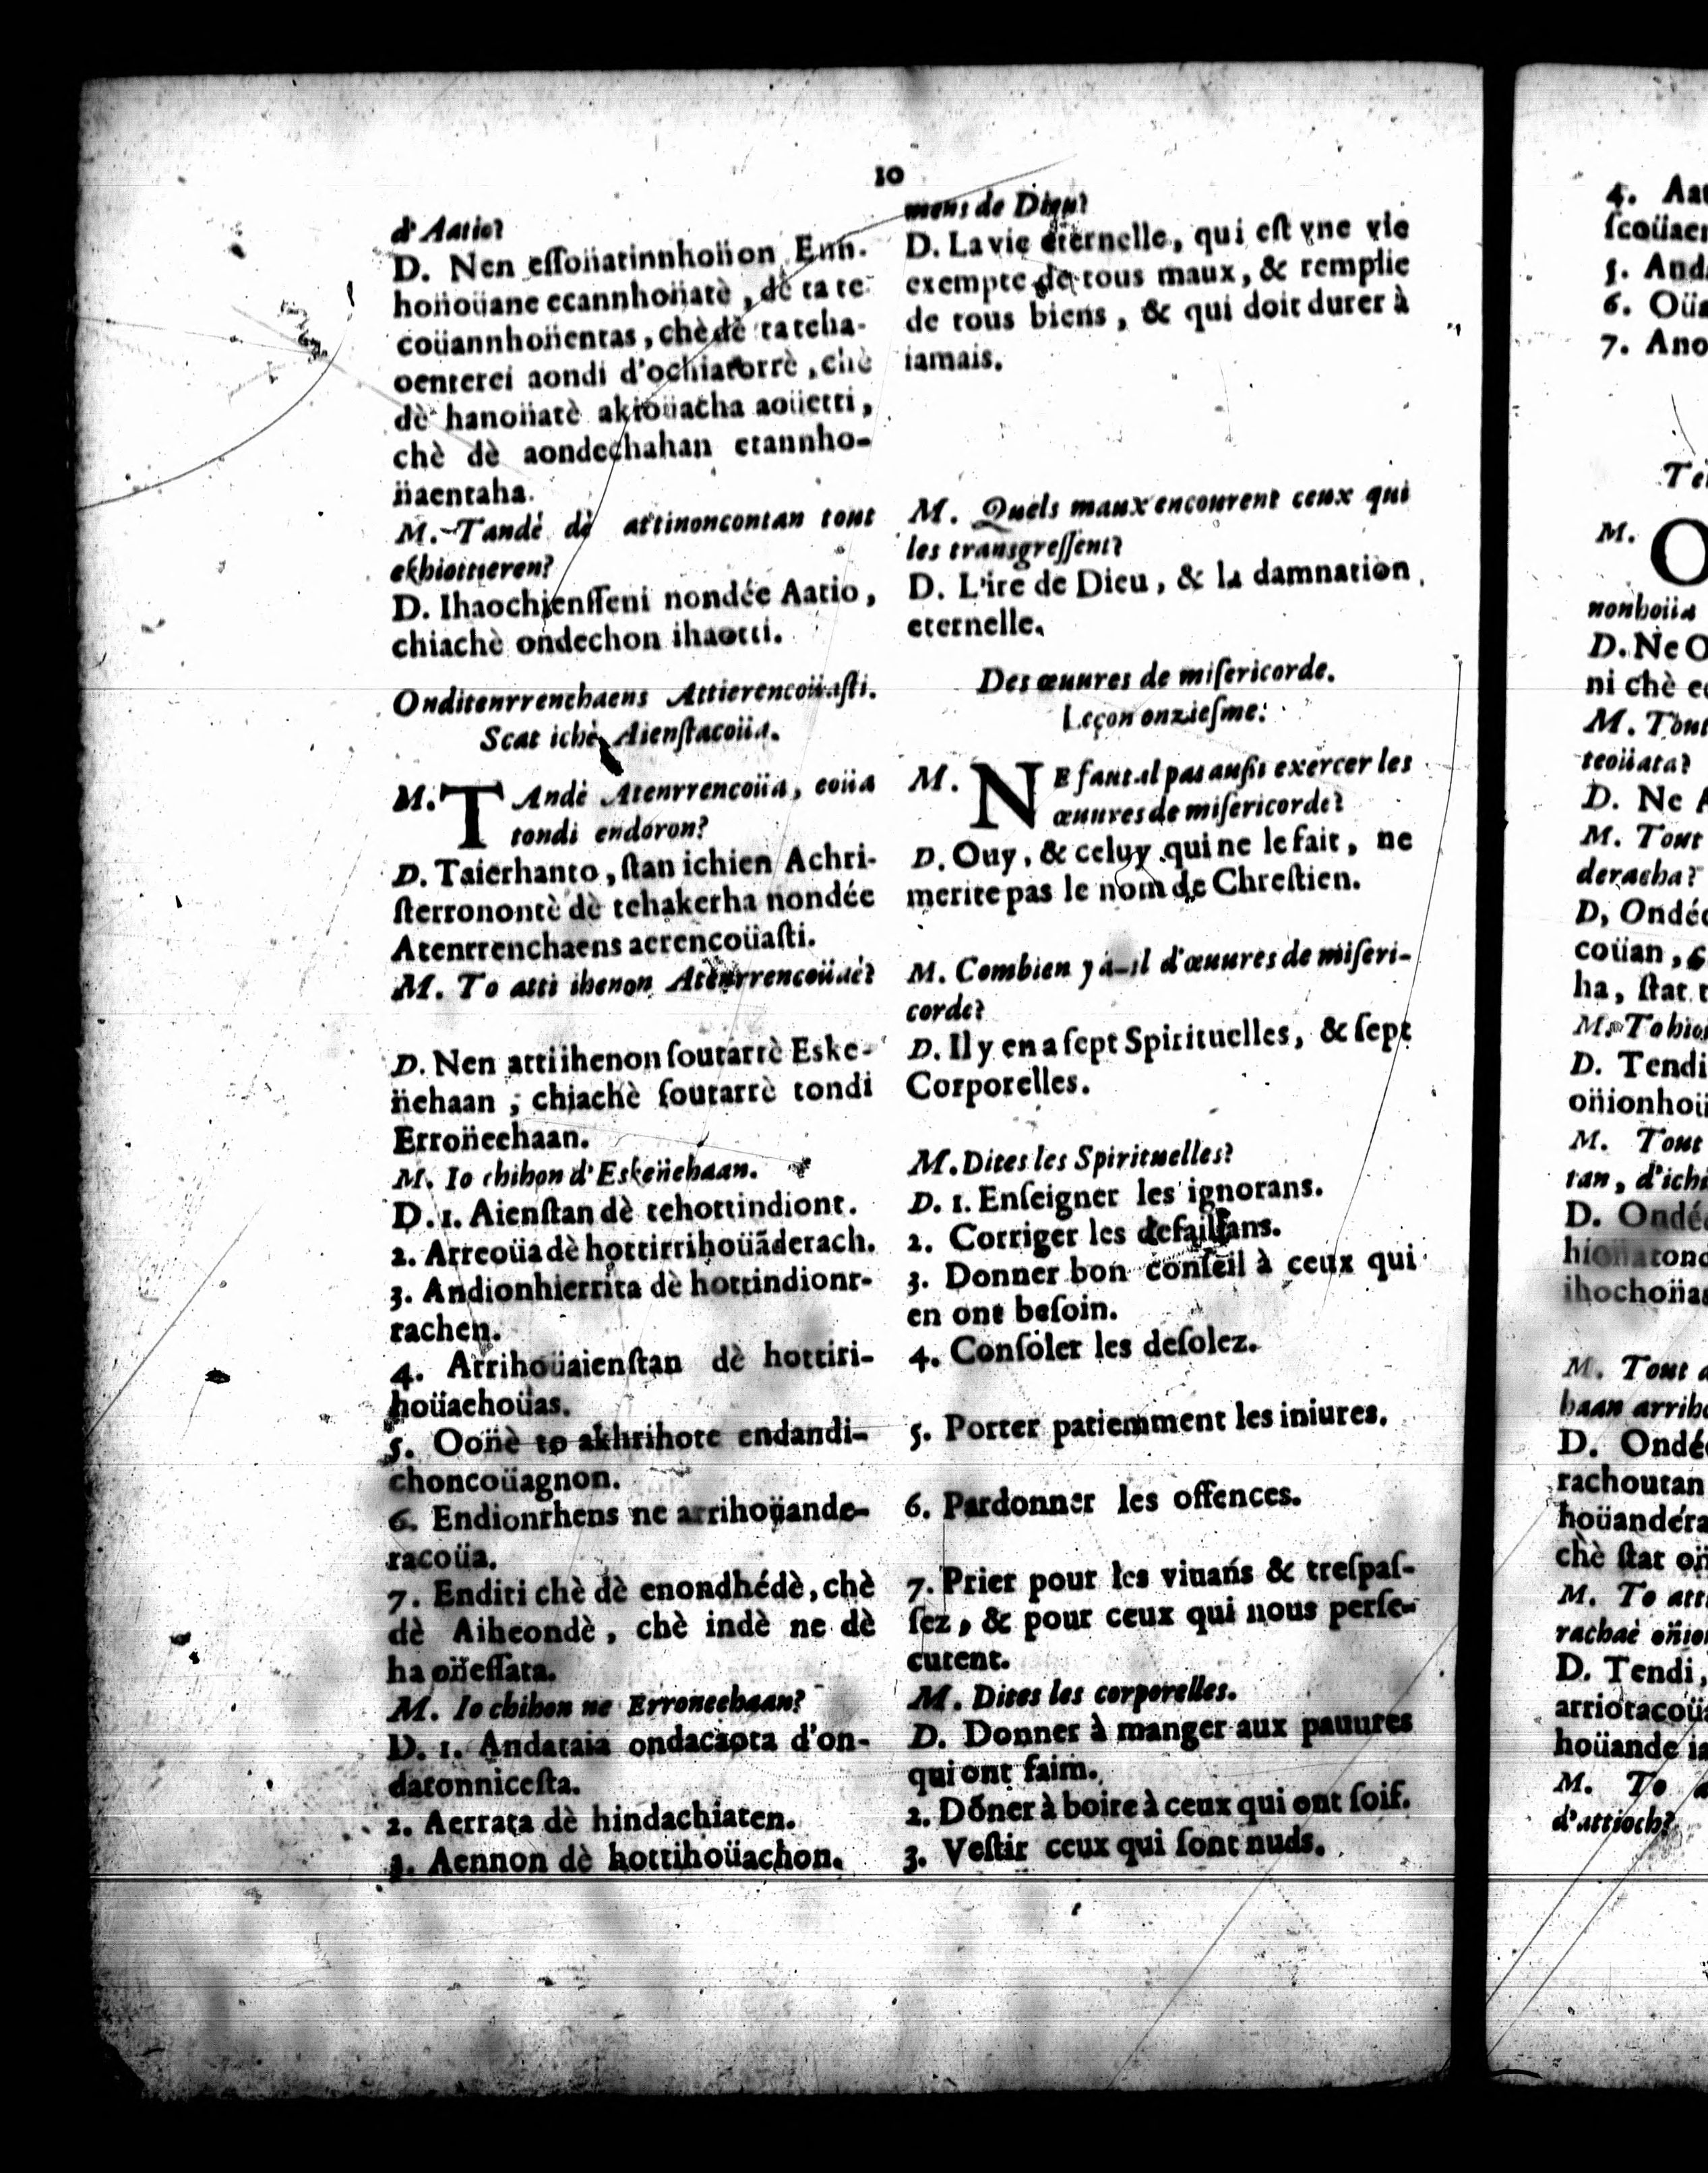 10
d'Aatio?
D. Nen essoüatinnhoüon Enn-
hoüoüane ecannhoüatè, dè ta te-
coüannhoüentas, chè dè ta teha-
oenterei aondi d'ochiatorrè, chè
dè hanoüatè akioüacha aoüetti,
chè dè aondechahan etannho-
üaentaha.
M. Tandè dè attinoncontan tout
ekhiottieren?
D. Ihaochienſſeni nondée Aatio,
chiachè ondechon ihaotti.
Onditenrrenchaens Attierencoüaſti.
Scat ichè Aienſtacoüa.
M. TAndè Atenrrencoüa, eoüa
tondi endoron?
D. Taierhanto, ſtan ichien Achri-
ſterrononтè dè tehakerha nondée
Atenrrenchaens aerencoüaſti.
M. To atti ihenon Atenrrencoüaè?
D. Nen atti ihenon ſoutarrè Eske-
n̈ehaan ; chiachè ſoutarrè tondi
Erron̈eehaan.
M. Io chihon d'Esken̈ehaan.
D. 1. Aienſtan dè tehottindiont.
2. Arreoüa dè hottirrihoüãderach.
3. Andionhierrita dè hottindiont-
rachen.
4. Arrihoüaienſtan dè hottiri-
hoüachoüas.
5. Oon̈è to akhrihote endandi-
choncoüagnon.
6. Endionrhens ne arrihoüande-
racoüa.
7. Enditi chè dè enondhédè, chè
dè Aiheondè, chè indè ne dè
ha on̈eſſata.
M. Io chihon ne Erroneehaan?
D. 1. Andataia ondacaota d'on-
datonniceſta.
2. Aerrata dè hindachiaten.
3. Aennon dè hottihoüachon.
mens de Dieu?
D. La vie éternelle, qui eſt vne vie
exempte de tous maux, & remplie
de tous biens, & qui doit durer à
iamais.
M. Quels maux encourent ceux qui
les transgreſſent?
D. L'ire de Dieu, & la damnation
eternelle.
Des œuures de miſericorde.
Leçon onzieſme.
M. NE faut-il pas auſſi exercer les
œuures de miſericorde?
D. Ouy, & celuy qui ne le fait, ne
merite pas le nom de Chreſtien.
M. Combien y a-il d'œuures de miſeri-
corde?
D. Il y en a ſept Spirituelles, & ſept
Corporelles.
M. Dites les Spirituelles?
D. 1. Enſeigner les ignorans.
2. Corriger les defaillans.
3. Donner bon conſeil à ceux qui
en ont beſoin.
4. Conſoler les deſolez.
5. Porter patiemment les iniures.
6. Pardonner les offences.
7. Prier pour les viuans & treſpaſ-
ſez, & pour ceux qui nous perſe-
cutent.
M. Dites les corporelles.
D. Donner à manger aux pauures
qui ont faim.
2. Dõner à boire à ceux qui ont ſoif.
3. Veſtir ceux qui ſont nuds.
4. Aat
ſcoüaen
5. And
6. Oüa
7. Ano
Te
M. O
nonhoüa
D. Ne O
ni chè e
M. Tout
teoüata?
D. Ne A
M. Tout
deracha?
D, Ondé
coüan, &
ha, ſtat t
M. To hio
D. Tendi
on̈ionhoü
M. Tout
tan, d'ichi
D. Ondé
hioüatond
ihochoüas
M. Tout d
haan arriho
D. Ondé
rachoutan
hoüandéra
chè ſtat on̈
M. To atti
rachaè on̈io
D. Tendi,
arriotacoüa
hoüande ia
M. To a
d'attioch?